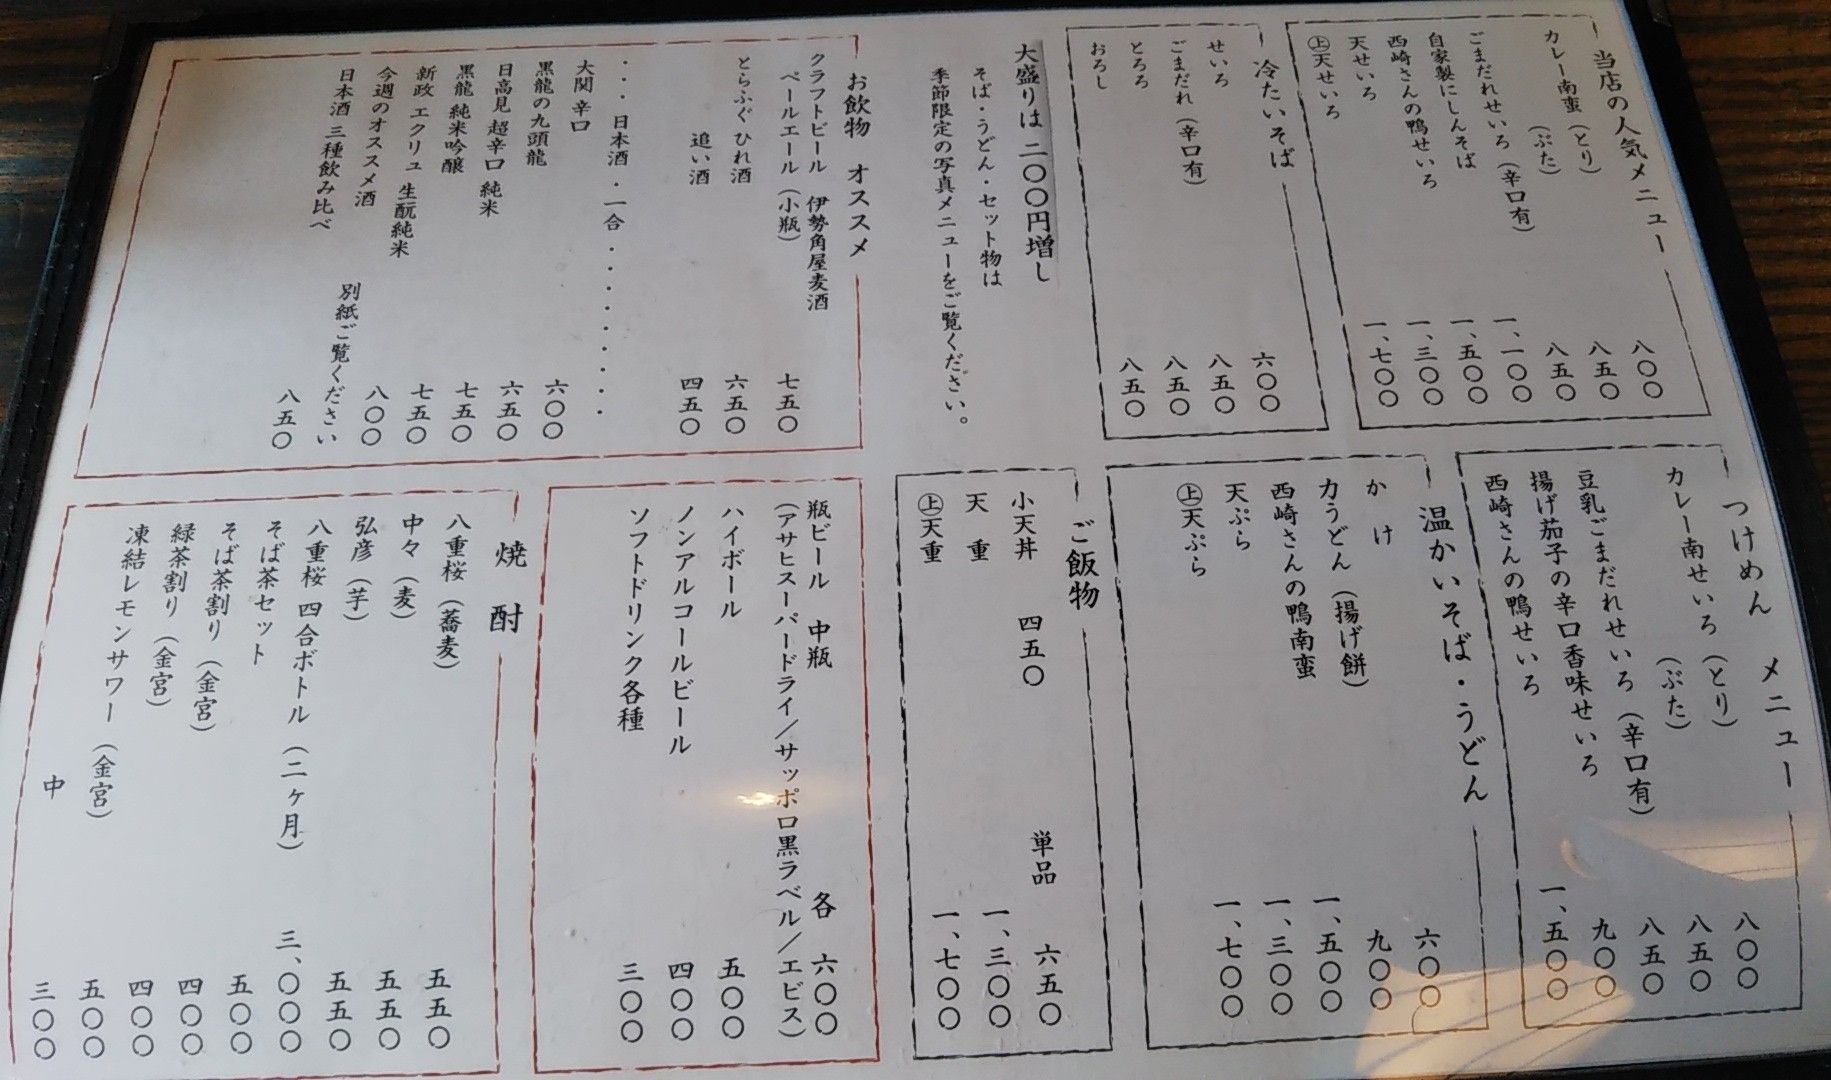 メニュー
当店の人気メニュー
カレー南蛮（とり） 八〇〇
（ぶた） 八五〇
ごまだれせいろ（辛口有） 八五〇
自家製にしんそば 一、一〇〇
西崎さんの鴨せいろ 一、五〇〇
天せいろ 一、三〇〇
㊤天せいろ 一、七〇〇
冷たいそば
せいろ 六〇〇
ごまだれ（辛口有） 八五〇
とろろ 八五〇
おろし 八五〇
大盛りは 二〇〇円増し
そば・うどん・セット物は
季節限定の写真メニューをご覧ください。
お飲物 オススメ
クラフトビール 伊勢角屋麦酒
ペールエール（小瓶） 七五〇
とらふぐ ひれ酒 六五〇
追い酒 四五〇
・・・日本酒・一合・・・・・・・・・
大関 辛口 六〇〇
黒龍の九頭龍 六五〇
日高見 超辛口 純米 七五〇
黒龍 純米吟醸 七五〇
新政 エクリュ 生酛純米 八〇〇
今週のオススメ酒 別紙ご覧ください
日本酒 三種飲み比べ 八五〇
つけめん
カレー南せいろ（とり） 八〇〇
（ぶた） 八五〇
豆乳ごまだれせいろ（辛口有） 八五〇
揚げ茄子の辛口香味せいろ 九〇〇
西崎さんの鴨せいろ 一、五〇〇
温かいそば・うどん
かけ 六〇〇
力うどん（揚げ餅） 九〇〇
西崎さんの鴨南蛮 一、五〇〇
天ぷら 一、三〇〇
㊤天ぷら 一、七〇〇
ご飯物
小天丼 四五〇 単品 六五〇
天重 一、三〇〇
㊤天重 一、七〇〇
瓶ビール 中瓶 各 六〇〇
（アサヒスーパードライ／サッポロ黒ラベル／エビス）
ハイボール 五〇〇
ノンアルコールビール 四〇〇
ソフトドリンク各種 三〇〇
焼酎
八重桜（蕎麦） 五五〇
中々（麦） 五五〇
弘彦（芋） 五五〇
八重桜 四合ボトル（二ヶ月） 三、〇〇〇
そば茶セット 五〇〇
そば茶割り（金宮） 四〇〇
緑茶割り（金宮） 四〇〇
凍結レモンサワー（金宮） 五〇〇
中 三〇〇